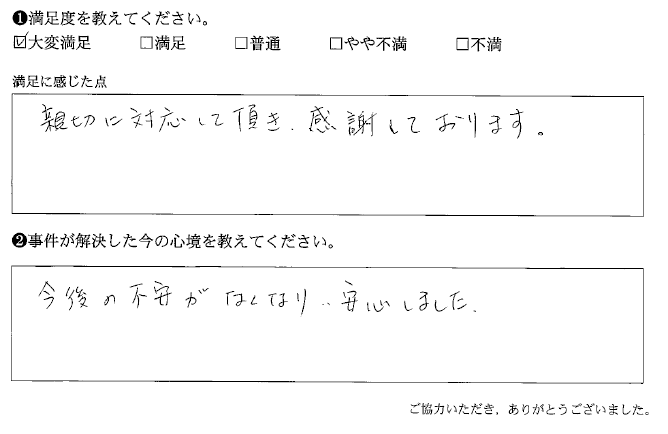 ❶満足度を教えてください。
☑大変満足 □満足 □普通 □やや不満 □不満
満足に感じた点
親切に対応して頂き、感謝しております。
❷事件が解決した今の心境を教えてください。
今後の不安がなくなり、安心しました。
ご協力いただき、ありがとうございました。